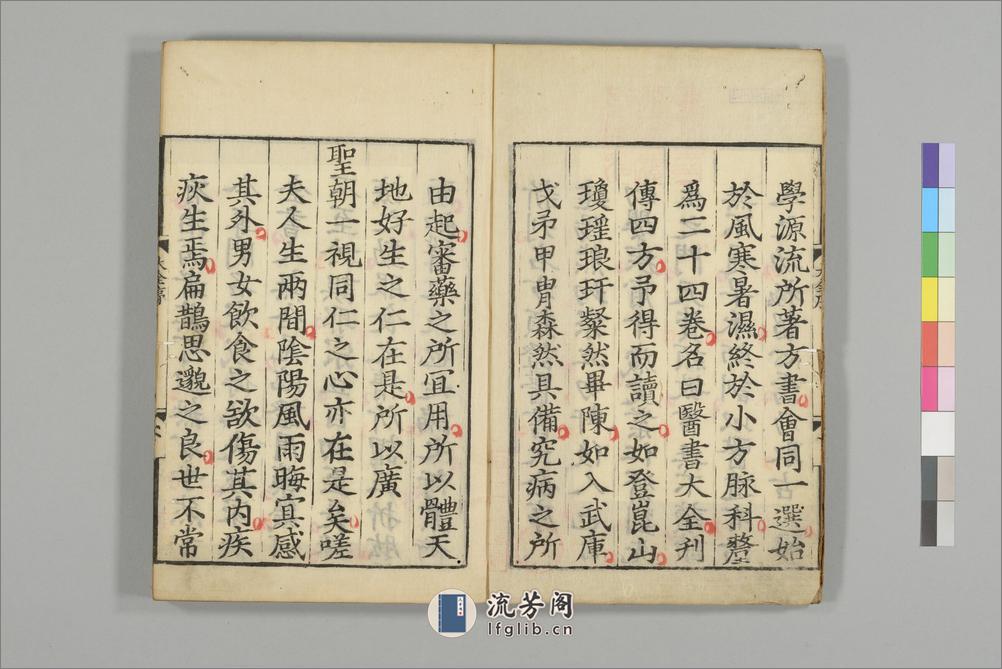 學源流所著方書會同一選始
於風寒暑濕終於小方脉科釐
爲二十四卷名曰醫書大全刋
傳四方予得而讀之如登崑山
瓊瑶琅玕粲然畢陳如入武庫
戈矛甲冑森然具備究病之所
由起審藥之所冝用所以體天
地好生之仁在是所以廣
聖朝一視同仁之心亦在是矣嗟
夫人生兩間隂陽風雨晦㝠感
其外男女飲食之欲傷其内疾
疢生焉扁鵲思邈之良世不常
大全序
流芳阁
lfglib.cn